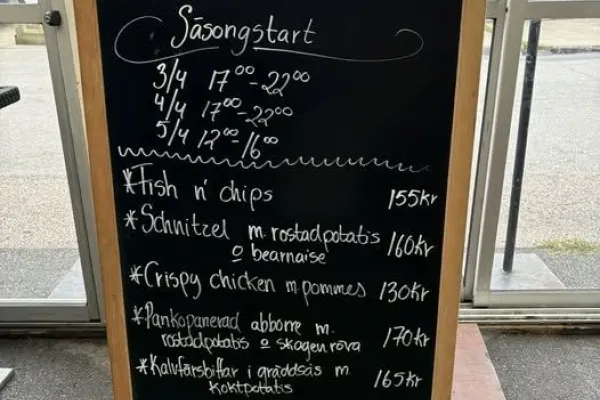 Säsongstart
3/4 17⁰⁰-22⁰⁰
4/4 17⁰⁰-22⁰⁰
5/4 12⁰⁰-16⁰⁰
*Fish n' chips 155kr
*Schnitzel m. rostadpotatis
o bearnaise 160kr
*Crispy chicken m. pommes 130kr
*Pankopanerad abborre m.
rostadpotatis o skagenröra 170kr
*Kalvfärsbiffar i gräddsås m
koktpotatis 165kr